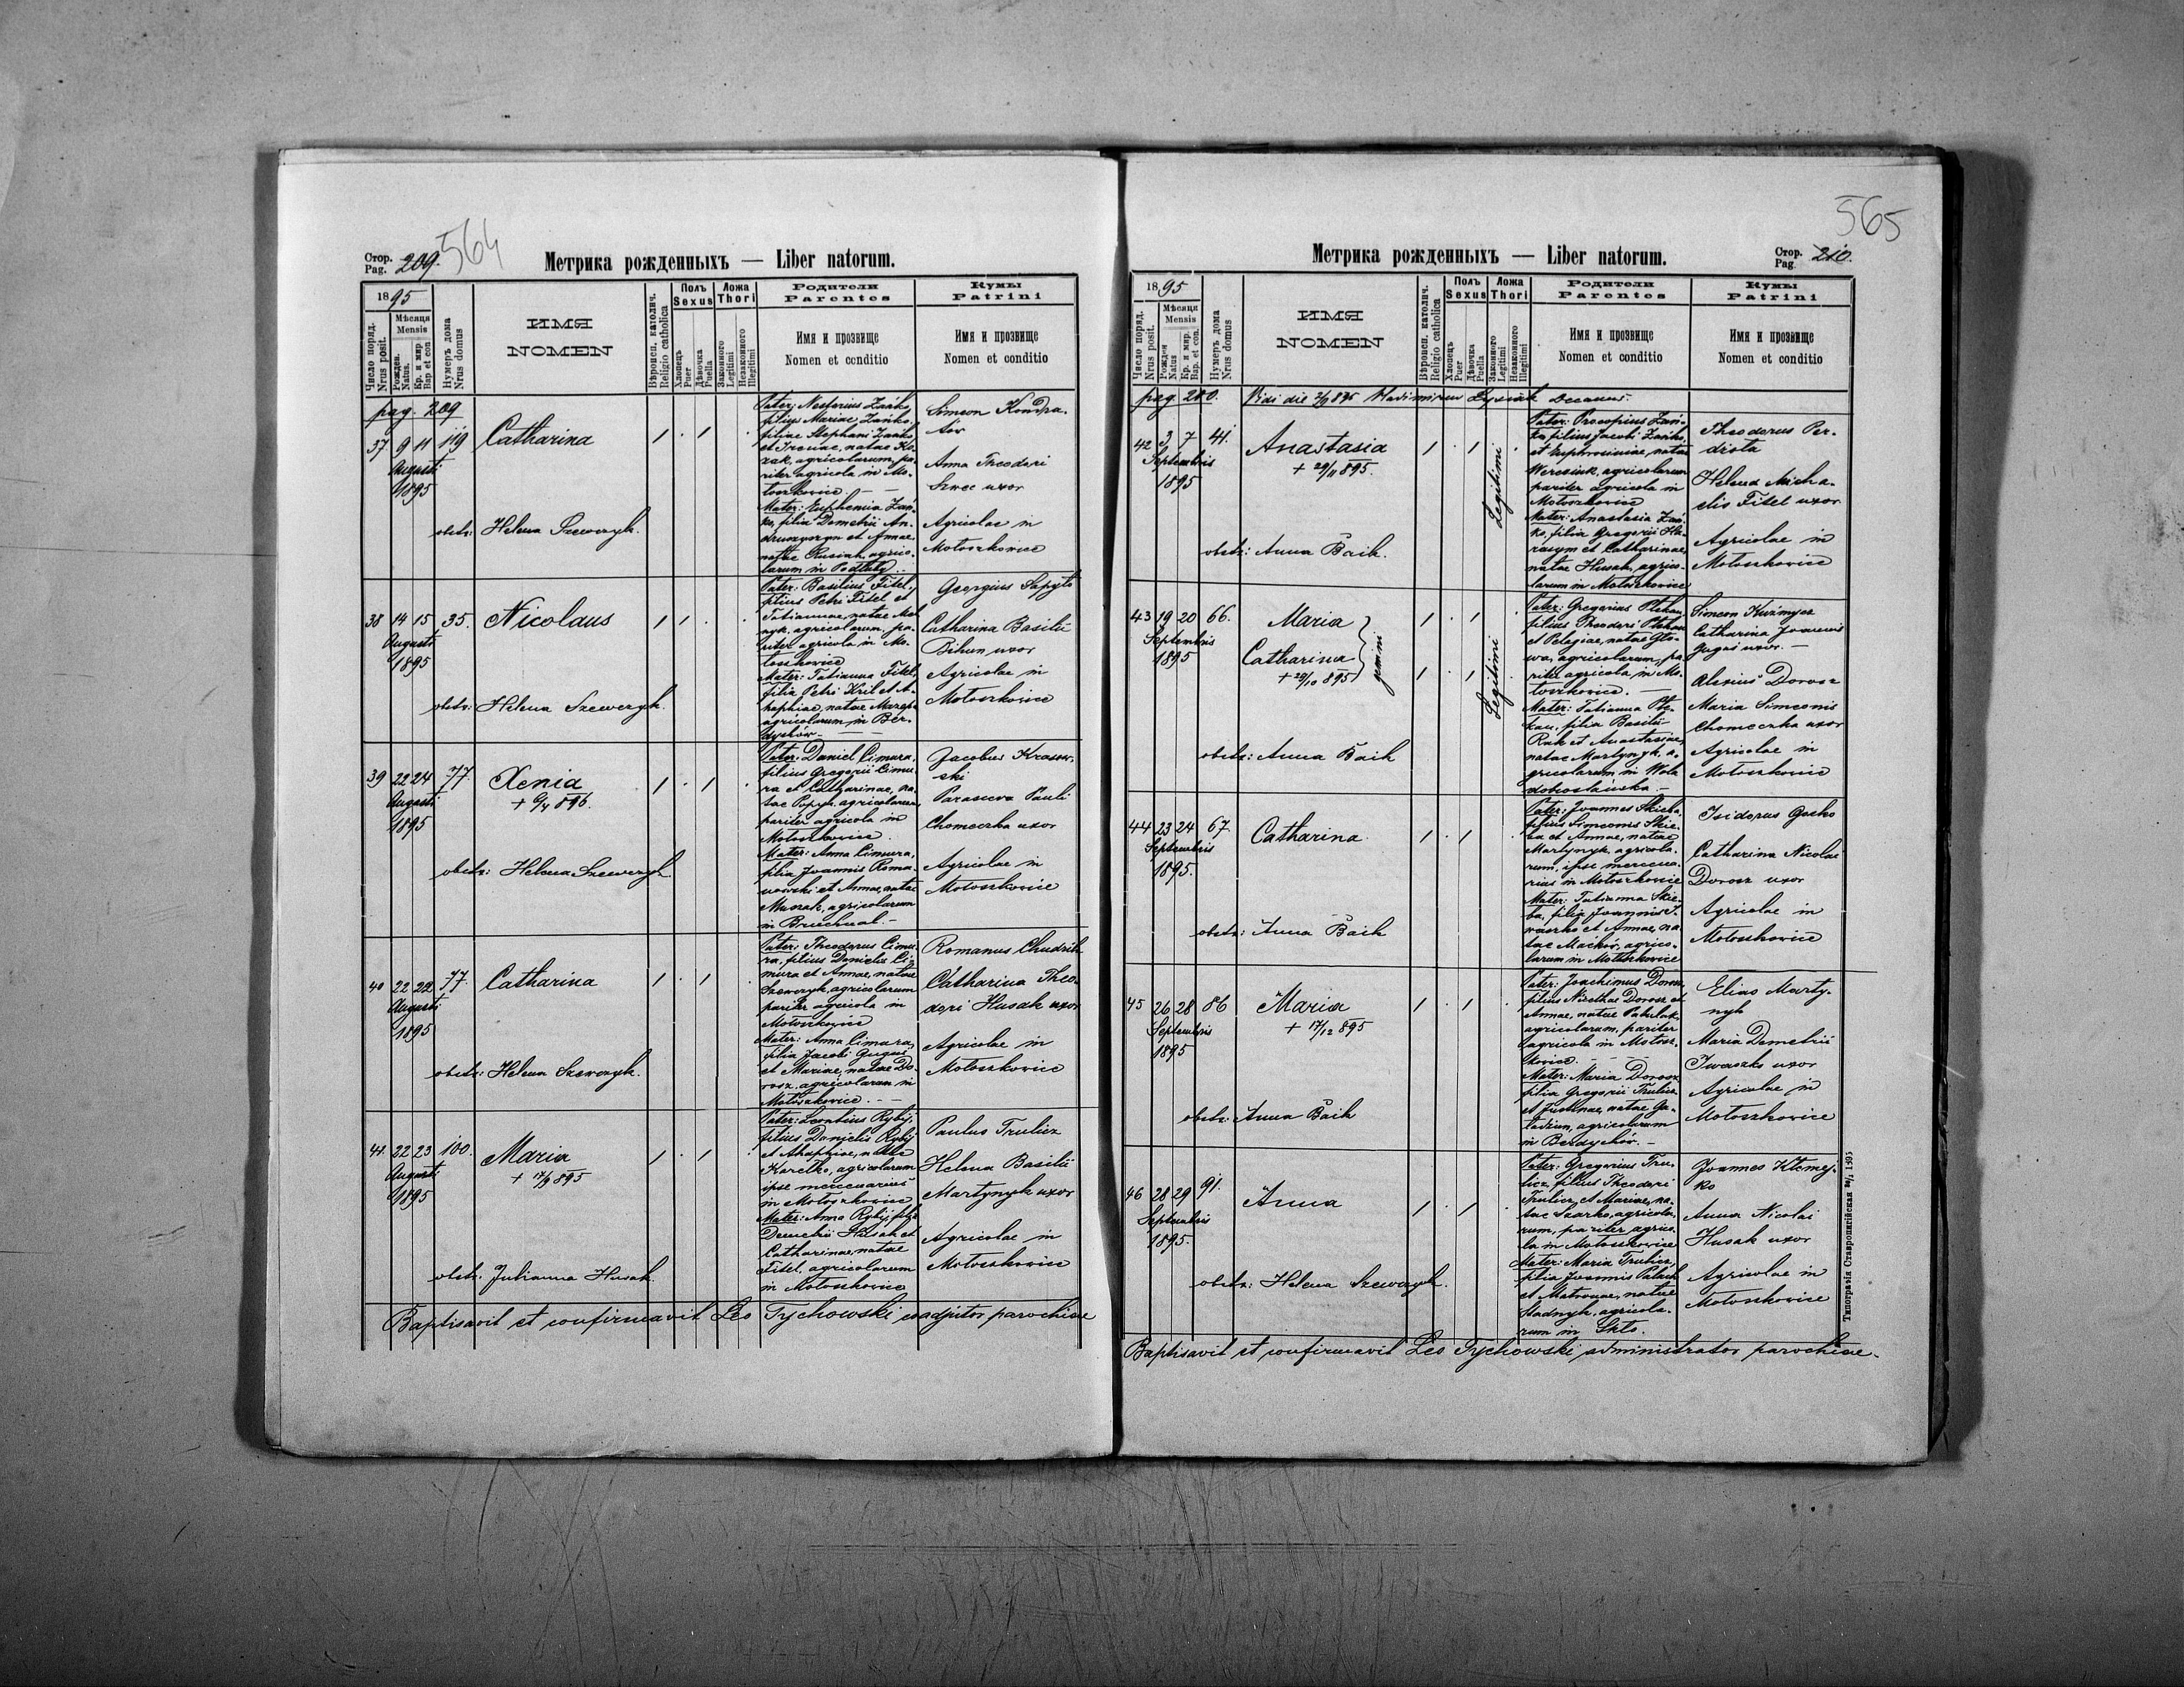 564
Стор.
Pag. 209.
Метрика рожденныхъ — Liber natorum.
1895
Число поряд.
Nrus posit.
Мѣсяця
Mensis
Рожден.
Natus.
Кр. и мир
Bap et con
Нумеръ дома
Nrus domus
ИМЯ
NOMEN
Вѣроисп. католич.
Religio catholica
Полъ
Sexus
Хлопець
Puer
Дѣвочка
Puella
Ложа
Thori
Законного
Legitimi
Незаконного
Illegitimi
Родители
Parentes
Имя и прозвище
Nomen et conditio
Кумы
Patrini
Имя и прозвище
Nomen et conditio
pag. 209
37 9 11 119
Augusti
1895
Catharina
obstr: Helena Szewczyk.
Pater: Nesterius Zańko,
filius Mariae Zańko,
filiae Stephani Zańko
et Irenae, natae Ko-
zak, agricolarum, pa-
riter agricola in Mo-
toszkowice
Mater: Euphemia Zań-
ko, filia Demetrii An-
druszyszyn et Annae,
natae Rusiak, agrico-
larum in Podłuby
Simeon Kondra-
tiw
Anna Theodori
Szwec uxor
Agricolae in
Motoszkowice
38 14 15 35.
Augusti
1895
Nicolaus
obstr: Helena Szewczyk.
Pater: Basilius Fitel,
filius Petri Fitel et
Tatiannae, natae Mel
nyk, agricolarum, pa-
riter agricola in Mo-
toszkowice
Mater: Tatianna Fitel,
filia Petri Kril et A-
haphiae, natae Mazepa
agricolarum in Ber-
dychów
Georgius Sapyto
Catharina Basilii
Dihun uxor
Agricolae in
Motoszkowice
39 22 24 77.
Augusti
1895
Xenia
+ 9/4 896.
obstr: Helena Szewczyk
Pater: Daniel Cimura,
filius Gregorii Cimu-
ra et Catharinae, na-
tae Popyk, agricolarum,
pariter agricola in
Motoszkowice
Mater: Anna Cimura,
filia Joannis Roma-
nowski et Annae, natae
Muszak, agricolarum
in Bruchnal.
Jacobus Krasow-
ski
Parasceva Pauli
Chomeczka uxor
Agricolae in
Motoszkowice
40 22 22 77.
Augusti
1895
Catharina
obstr: Helena Szewczyk.
Pater: Theodorus Cimu-
ra, filius Danielis Ci-
mura et Annae, natae
Szewczyk, agricolarum
pariter agricola in
Motoszkowice
Mater: Anna Cimura,
filia Jacobi Guguś
et Mariae, natae Do-
rosz, agricolarum in
Motoszkowice.
Romanus Chudzik
Catharina Theo-
dori Husak uxor
Agricolae in
Motoszkowice
41. 22 23 100.
Augusti
1895
Maria
+ 17/9 895
obstr. Julianna Husak.
Pater: Leontius Rybij,
filius Danielis Rybij
et Ahaphiae, natae
Karetko, agricolarum
ipse mercenarius
in Motoszkowice
Mater: Anna Rybij, filia
Demetrii Husak et
Catharinae, natae
Fitel, agricolarum
in Motoszkowice
Paulus Trulicz
Helena Basilii
Martynyk uxor
Agricolae in
Motoszkowice
Baptisavit et confirmavit Leo Tychowski coadjutor parochiae
565
Метрика рожденныхъ — Liber natorum.
Стор.
Pag. 210.
1895
Число поряд.
Nrus posit.
Мѣсяця
Mensis
Рожден
Natus
Кр. и мир.
Bap. et con.
Нумеръ дома
Nrus domus
ИМЯ
NOMEN
Вѣроисп. католич.
Religio catholica
Полъ
Sexus
Хлопець
Puer
Дѣвочка
Puella
Ложа
Thori
Законного
Legitimi
Незаконного
Illegitimi
Родители
Parentes
Имя и прозвище
Nomen et conditio
Кумы
Patrini
Имя и прозвище
Nomen et conditio
pag. 210. Vidi die 2/9 895 Wladimirus Decanus.
42 3 7 41.
Septembris
1895
Anastasia
+ 29/11 895.
Legitimi
obstr: Anna Baik.
Pater: Procopius Zań-
ko filius Jacobi Zańko,
et Euphrosiniae, natae
Weresiuk, agricolarum
pariter agricola in
Motoszkowice
Mater: Anastasia Zań-
ko, filia Gregorii Ha-
rasym et Catharinae,
natae Husak, agrico-
larum in Motoszkowice
Theodorus Per-
drota
Helena Micha-
elis Fitel uxor
Agricolae in
Motoszkowice
43 19 20 66.
Septembris
1895
Maria
Catharina
+ 29/10 895
gemini
Legitimi
obstr: Anna Baik
Pater: Gregorius
filius Theodori
et Pelagiae, natae Gło-
wa, agricolarum, pa
riter agricola in Mo-
toszkowice.
Mater: Tatianna
filia Basilii
Ruk et Anastasiae,
natae Martynyk, a-
gricolarum in Wola
dobrostańska
Simeon Kuźmycz
Catharina Joannis
Guguś uxor.
Alexius Dorosz
Maria Simeonis
Chomeczka uxor
Agricolae in
Motoszkowice
44 23 24 67.
Septembris
1895.
Catharina
obstr: Anna Baik
Pater: Joannes Skieba,
filius Simeonis Skie-
ba et Annae, natae
Martynyk, agricola-
rum, ipse mercena-
rius in Motoszkowice
Mater: Tatianna Skie-
ba, filia Joannis I-
waszko et Annae, na-
tae Maćków, agrico-
larum in Motoszkowice
Isidorus Gocko
Catharina Nicolai
Dorosz uxor
Agricolae in
Motoszkowice
45 26 28 86
Septembris
1895
Maria
+ 17/12 895
obstr: Anna Baik
Pater: Joachimus Dorosz
filius Nicethae Dorosz et
Annae, natae Pahulak,
agricolarum, pariter
agricola in Motosz-
kowice.
Mater: Maria Dorosz
filia Gregorii Trulicz
et Justinae, natae Ga-
ladzun, agricolarum
in Berdychów.
Elias Marty-
nyk
Maria Demetrii
Iwaszko uxor
Agricolae in
Motoszkowice
46 28 29 91.
Septembris
1895.
Anna
obstr: Helena Szewczyk.
Pater: Gregorius Tru-
licz, filius Theodori
Trulicz, et Mariae, na-
tae Szarko, agricola-
rum, pariter agrico-
la in Motoszkowice
Mater: Maria Trulicz,
filia Joannis Palach
et Matronae, natae
Stadnyk, agricola-
rum in Skło.
Joannes Klemej-
ko
Anna Nicolai
Husak uxor
Agricolae in
Motoszkowice
Baptisavit et confirmavit Leo Tychowski administrator parochiae.
Типографія Ставропигійская